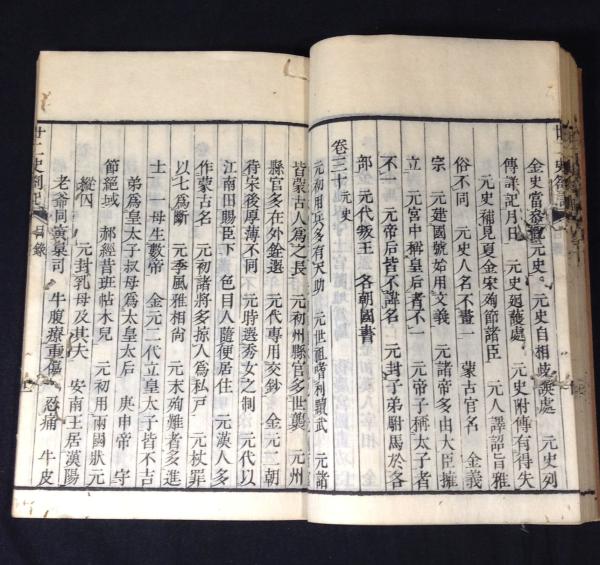 金史當參觀元史 元史自相歧誤處 元史列
傳詳記月日 元史迴護處 元史附傳有得失
元史補見夏金宋殉節諸臣 元人譯詔旨雅
俗不同 元史人名不畫一 蒙古官名 金義
宗 元建國號始用文義 元諸帝多由大臣擁
立 元宮中稱皇后者不一 元帝子稱太子者
不一 元帝后皆不諱名 元封子弟駙馬於各
部 元代叛王 各朝國書
卷三十 元史
元初用兵多有天助 元世祖嗜利黷武 元諸
皆蒙古人為之長 元初州縣官多世襲 元州
縣官多在外銓選 元代專用交鈔 金元二朝
待宋後厚薄不同 元時選秀女之制 元代以
江南田賜臣下 色目人隨便居住 元漢人多
作蒙古名 元初諸將多掠人為私戶 元杖罪
以七為斷 元季風雅相尚 元末殉難者多進
士 一母生數帝 金元二代立皇太子皆不吉
弟為皇太子叔母為太皇太后 庚申帝 守
節絕域 郝經昔班帖木兒 元初用兩國狀元
縱囚 元封乳母及其夫 安南王居漢陽
老爺同寅臬司 牛腹療重傷 忍痛 牛皮
廿二史劄記 目錄